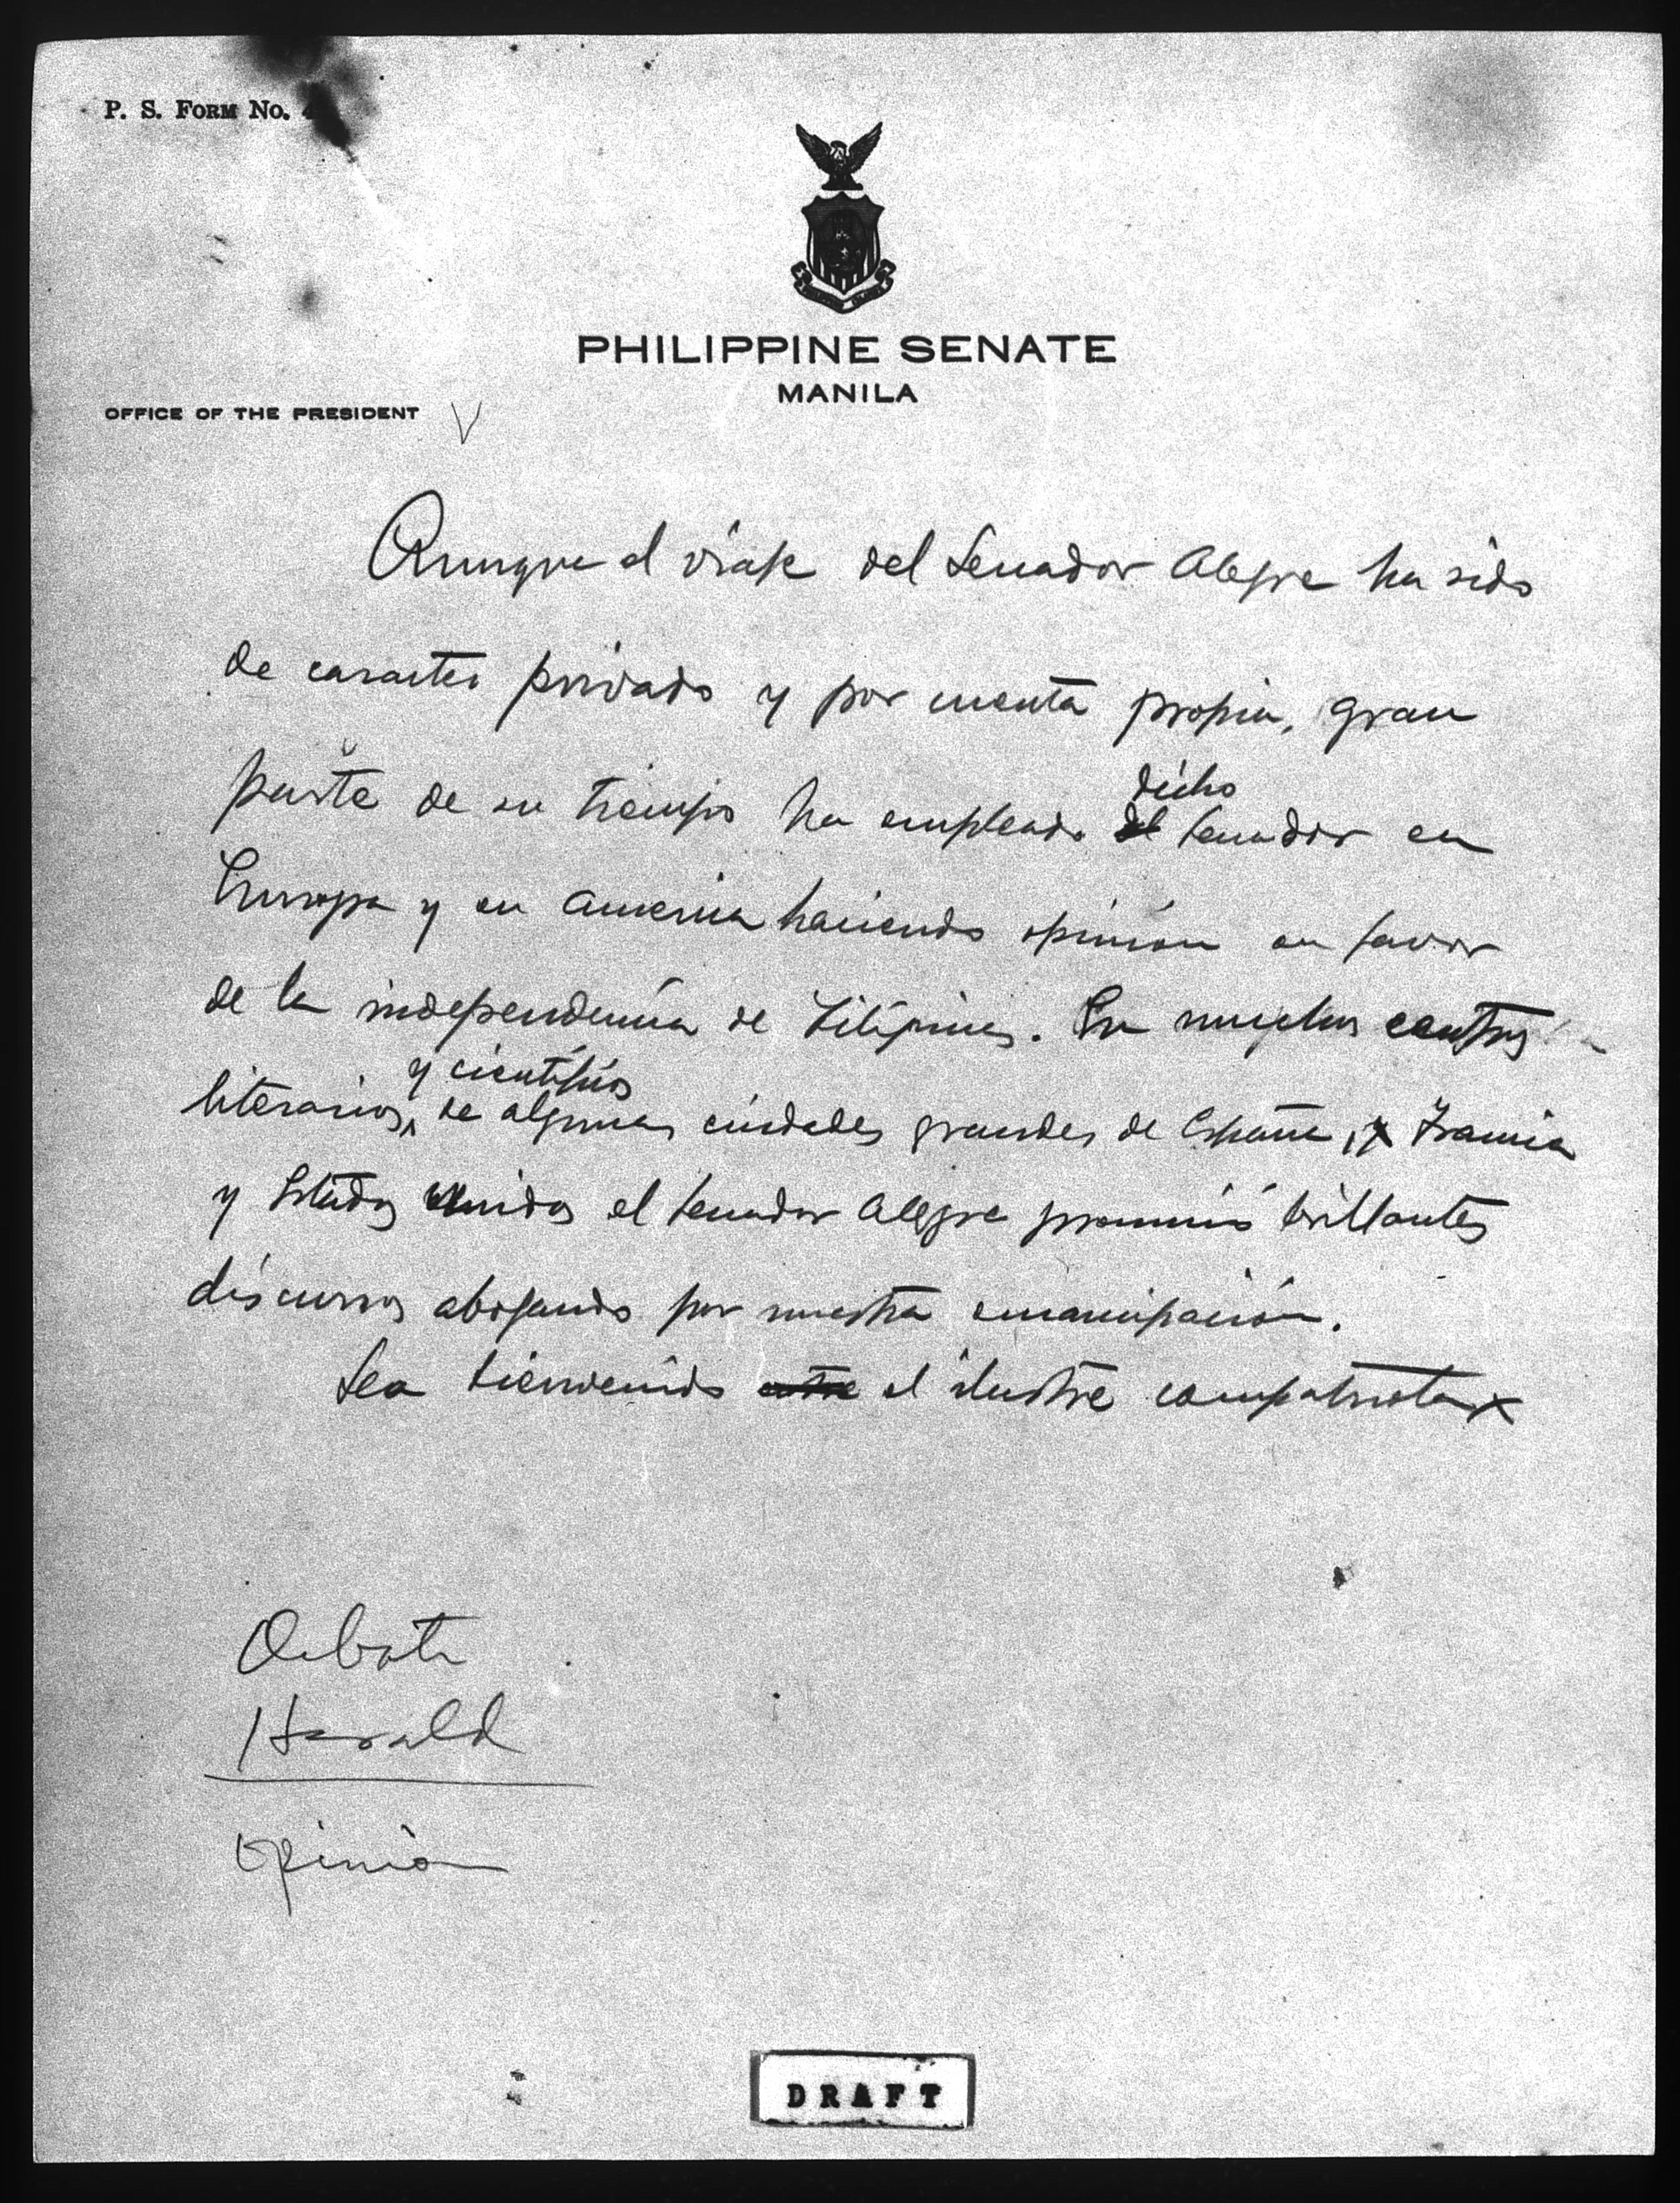 P. S. FORM No. 4
PHILIPPINE SENATE
MANILA
OFFICE OF THE PRESIDENT
Aunque el viaje del Senador Alegre ha sido
de caracter privado y por cuenta propia, gran
parte de su tiempo ha empleado el dicho senador en
Europa y en America haciendo opinión en favor
de la independencia de Filipinas. En muchos centros
literarios, y cientificos de algunas ciudades grandes de España, y Francia
y Estados Unidos el senador Alegre pronunció brillantes
discursos abogando por nuestra emancipación.
Sea bienvenido entre el ilustre compatriota
Debate
Herald
Opinión
DRAFT